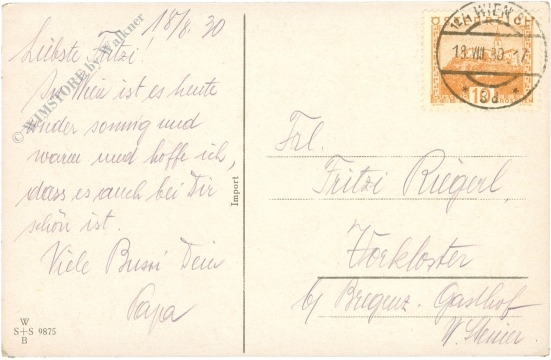 18/8. 30
Liebste Fritzi!
In Wien ist es heute
wieder sonnig und
warm und hoffe ich,
dass es auch bei Dir
schön ist.
Viele Bussi Dein
Papa
W
S+S 9875
B
Import
© WIMSTORE by Walkner
WIEN
18 VIII 30 · 17
* 9d *
Frl.
Fritzi Riegerl,
Workloster
b/ Bregenz. Gasthof
W. Steiner.